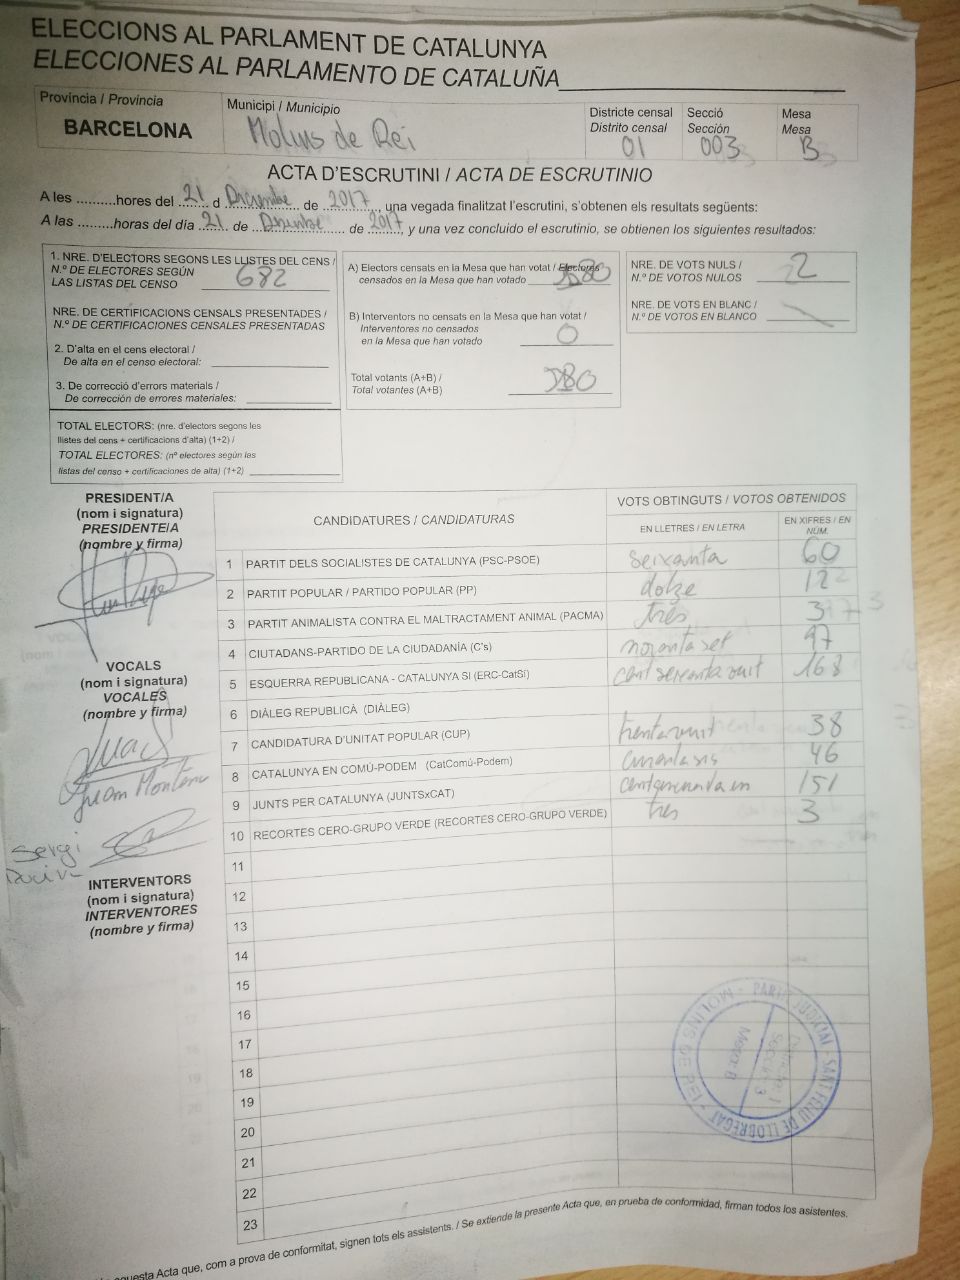 ELECCIONS AL PARLAMENT DE CATALUNYA
ELECCIONES AL PARLAMENTO DE CATALUÑA
Provincia / Provincia
BARCELONA
Municipi / Municipio
Molins de Rei
Districte censal
Distrito censal
01
Secció
Sección
003
Mesa
Mesa
B
ACTA D'ESCRUTINI / ACTA DE ESCRUTINIO
A les ..........hores del 21 d Dicembre de 2017, una vegada finalitzat l'escrutini, s'obtenen els resultats següents:
A las .........horas del día 21 de ... de 2017, y una vez concluido el escrutinio, se obtienen los siguientes resultados:
1. NRE. D'ELECTORS SEGONS LES LLISTES DEL CENS /
N.º DE ELECTORES SEGÚN
LAS LISTAS DEL CENSO 682
NRE. DE CERTIFICACIONS CENSALS PRESENTADES /
N.º DE CERTIFICACIONES CENSALES PRESENTADAS
2. D'alta en el cens electoral /
De alta en el censo electoral:
3. De correcció d'errors materials /
De corrección de errores materiales:
TOTAL ELECTORS: (nre. d'electors segons les
llistes del cens + certificacions d'alta) (1+2) /
TOTAL ELECTORES: (nº electores según las
listas del censo + certificaciones de alta) (1+2)
A) Electors censats en la Mesa que han votat / Electores
censados en la Mesa que han votado 580
B) Interventors no censats en la Mesa que han votat /
Interventores no censados
en la Mesa que han votado 0
Total votants (A+B) /
Total votantes (A+B) 580
NRE. DE VOTS NULS /
N.º DE VOTOS NULOS 2
NRE. DE VOTS EN BLANC /
N.º DE VOTOS EN BLANCO
PRESIDENT/A
(nom i signatura)
PRESIDENTE/A
(nombre y firma)
VOCALS
(nom i signatura)
VOCALES
(nombre y firma)
Juan Montero
Sergi
INTERVENTORS
(nom i signatura)
INTERVENTORES
(nombre y firma)
CANDIDATURES / CANDIDATURAS
VOTS OBTINGUTS / VOTOS OBTENIDOS
EN LLETRES / EN LETRA
EN XIFRES / EN NÚM.
1 PARTIT DELS SOCIALISTES DE CATALUNYA (PSC-PSOE) seixanta 60
2 PARTIT POPULAR / PARTIDO POPULAR (PP) dotze 12
3 PARTIT ANIMALISTA CONTRA EL MALTRACTAMENT ANIMAL (PACMA) tres 3
4 CIUTADANS-PARTIDO DE LA CIUDADANÍA (C's) noranta set 97
5 ESQUERRA REPUBLICANA - CATALUNYA SI (ERC-CatSÍ) cent seixanta vuit 168
6 DIÀLEG REPUBLICÀ (DIÀLEG)
7 CANDIDATURA D'UNITAT POPULAR (CUP) trentavuit 38
8 CATALUNYA EN COMÚ-PODEM (CatComú-Podem) 46
9 JUNTS PER CATALUNYA (JUNTSxCAT) 151
10 RECORTES CERO-GRUPO VERDE (RECORTES CERO-GRUPO VERDE) tres 3
11
12
13
14
15
16
17
18
19
20
21
22
23
PARTIT JUDICIAL - SANT FELIU DE LLOBREGAT - MOLINS DE REI
Districte 1
Secció 3
Mesa B
aquesta Acta que, com a prova de conformitat, signen tots els assistents. / Se extiende la presente Acta que, en prueba de conformidad, firman todos los asistentes.